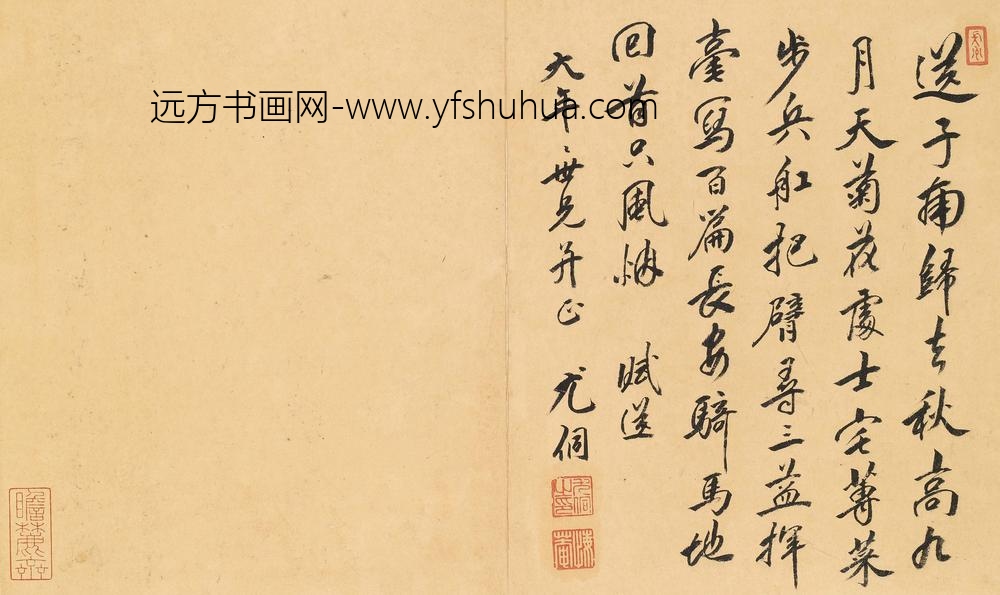 送子南歸去秋高九
月天菊花處士宅蓴菜
步兵舡把臂尋三益揮
毫寫百篇長安騎馬地
回首只風烟 賦送
大年世兄并正 尤侗
远方书画网-www.yfshuhua.com